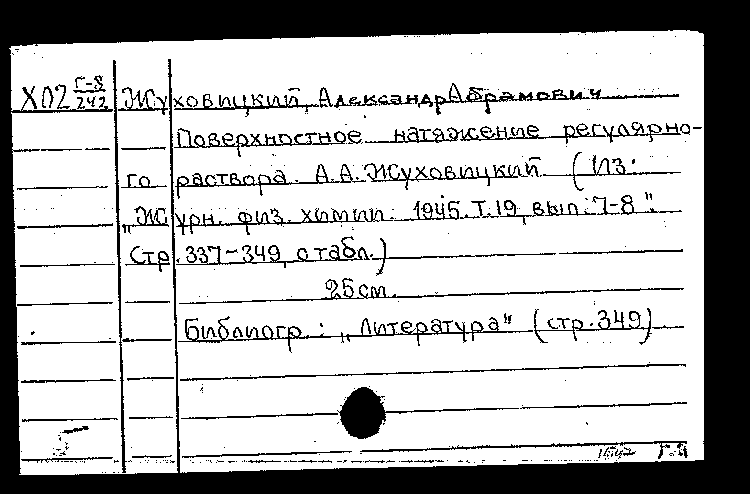 Х02 Г-8/242 Жуховицкий, Александр Абрамович
Поверхностное натяжение регулярно-
го раствора. А.А. Жуховицкий (Из:
„Журн. физ. химии. 1945. Т. 19, вып. 7-8".
Стр. 337-349, с табл.)
25 см.
Библиогр.: „Литература" (стр. 349)
5
Г-8